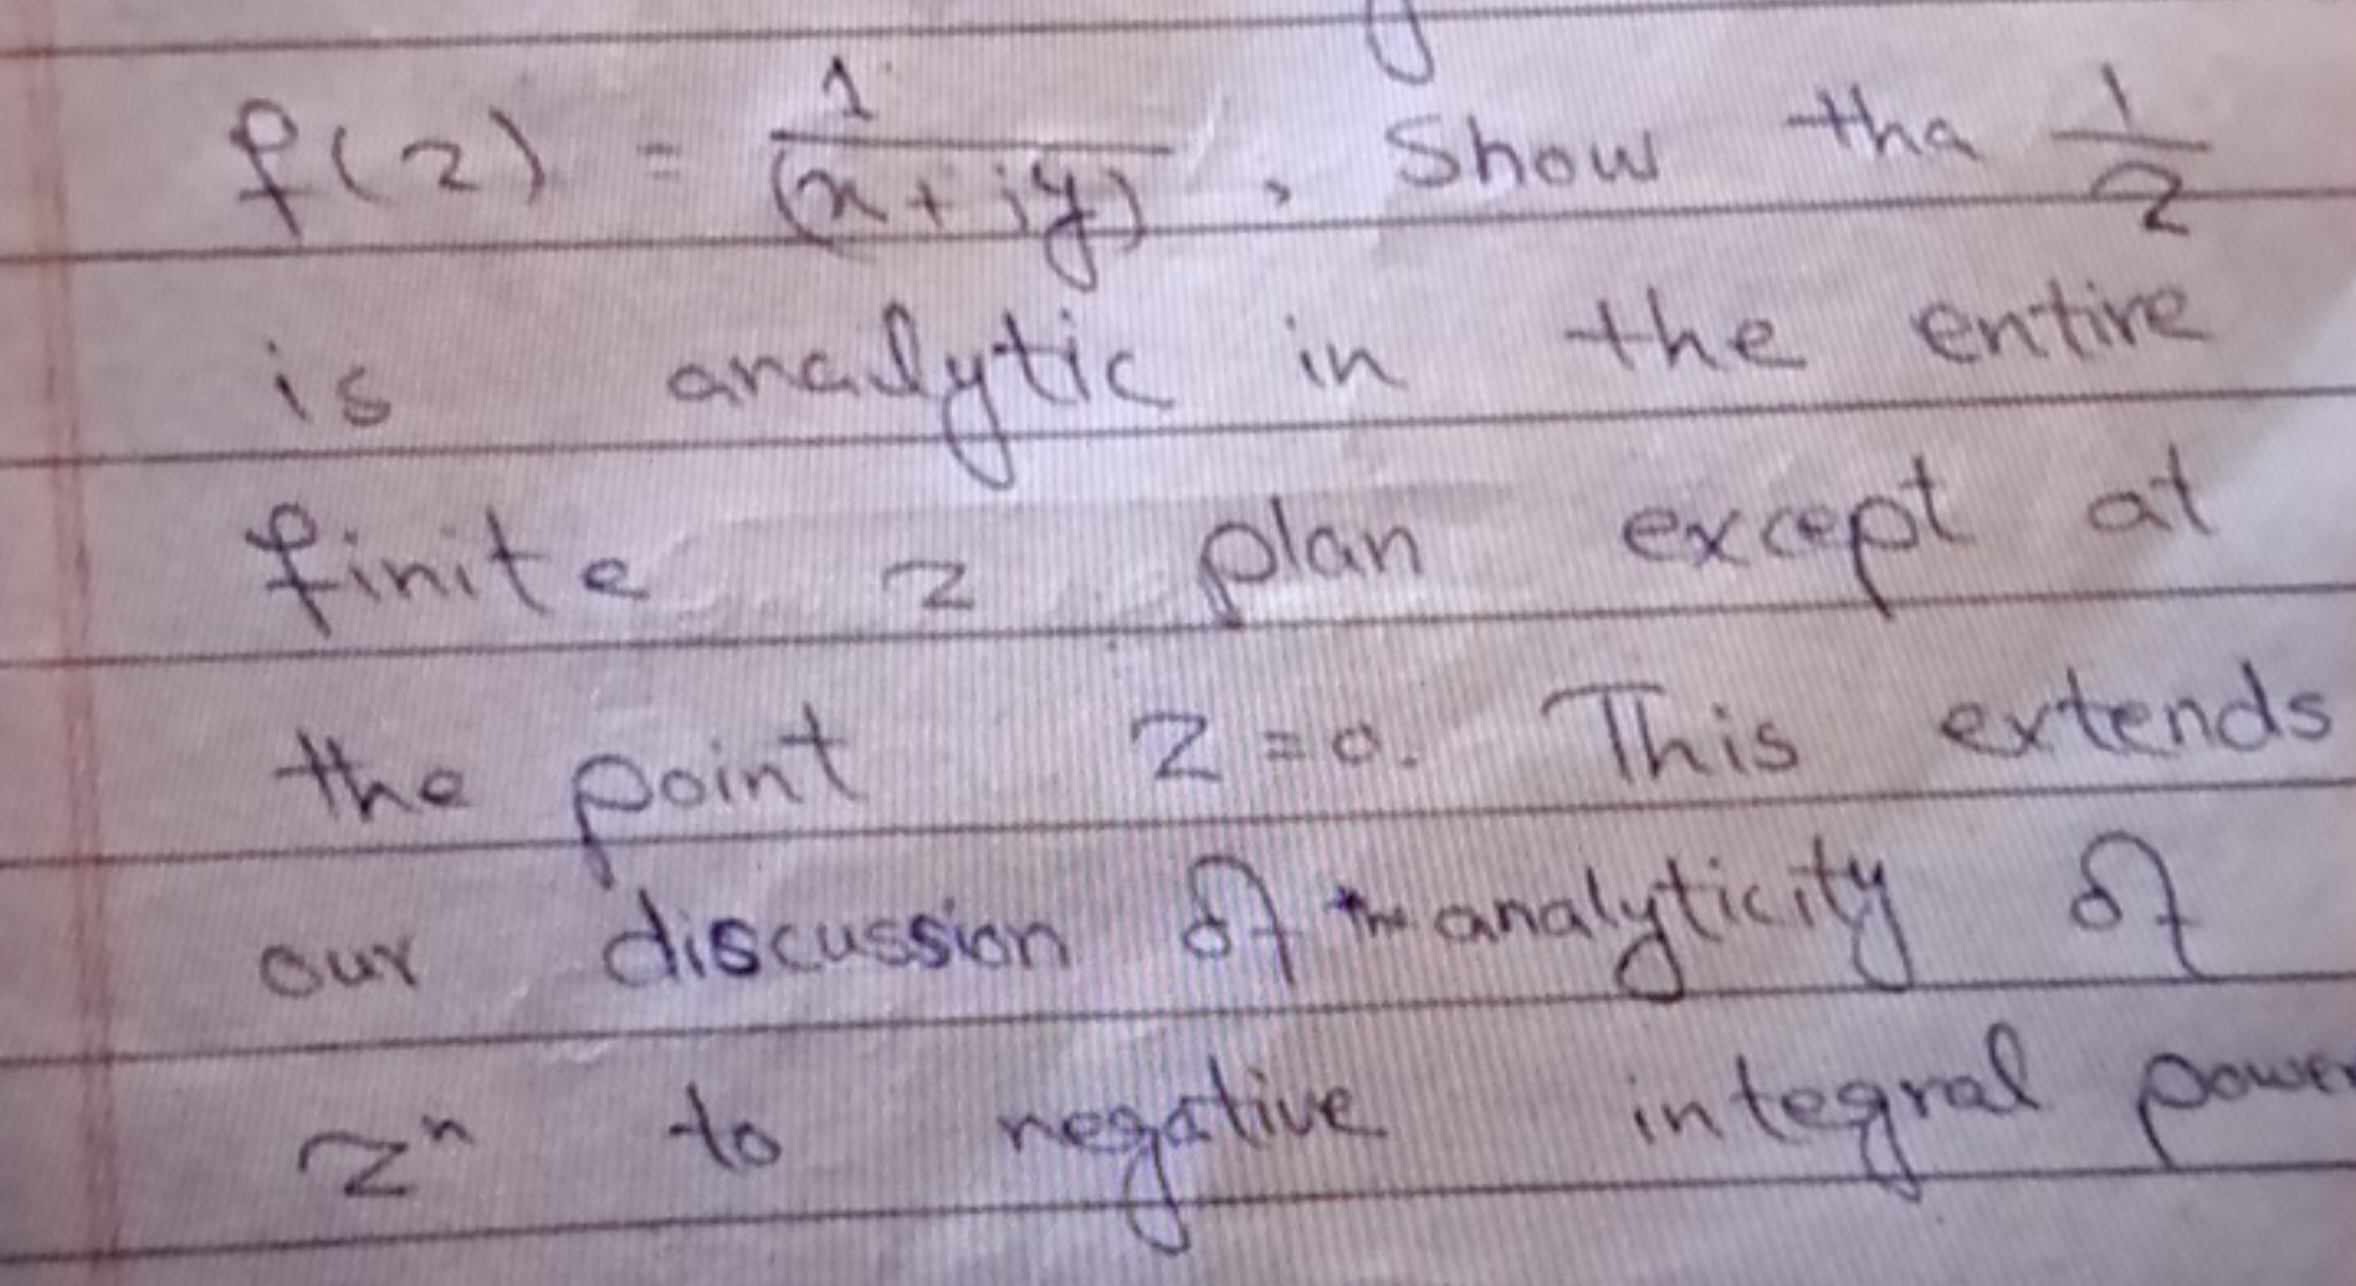 f(z) = 1/(x+iy), Show tha 1/z
is analytic in the entire
finite z plan except at
the point z=0. This extends
our discussion of the analyticity of
zⁿ to negative integral power